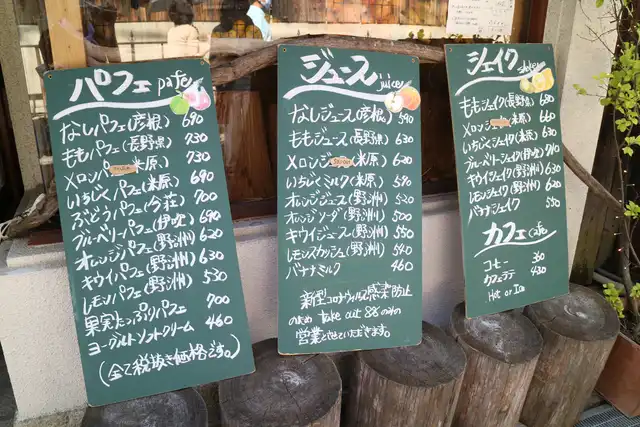 パフェ pafe
なしパフェ(彦根) 690
ももパフェ(長野県) 730
メロンパフェ(米原) 730
いちじくパフェ(米原) 620
ぶどうパフェ(今荘) 700
ブルーベリーパフェ(伊吹) 690
オレンジパフェ(野洲) 620
キウイパフェ(野洲) 630
レモンパフェ(野洲) 530
果実たっぷりパフェ 700
ヨーグルトソフトクリーム 460
(全て税抜き価格です。)
ジュース juice
なしジュース(彦根) 590
ももジュース(長野県) 630
メロンジュース(米原) 620
いちじくミルク(米原) 590
オレンジジュース(野洲) 520
オレンジソーダ(野洲) 500
キウイジュース(野洲) 550
レモンスカッシュ(野洲) 540
バナナミルク 460
新型コロナウィルス感染防止
のため take outのみの
営業とさせていただきます。
シェイク shake
ももシェイク(長野県) 680
メロンシェイク(米原) 660
いちじくシェイク(米原) 630
ブルーベリーシェイク(伊吹) 710
キウイシェイク(野洲) 630
レモンシェイク(野洲) 620
バナナシェイク 550
カフェ cafe
コーヒー 380
カフェラテ 430
Hot or Ice